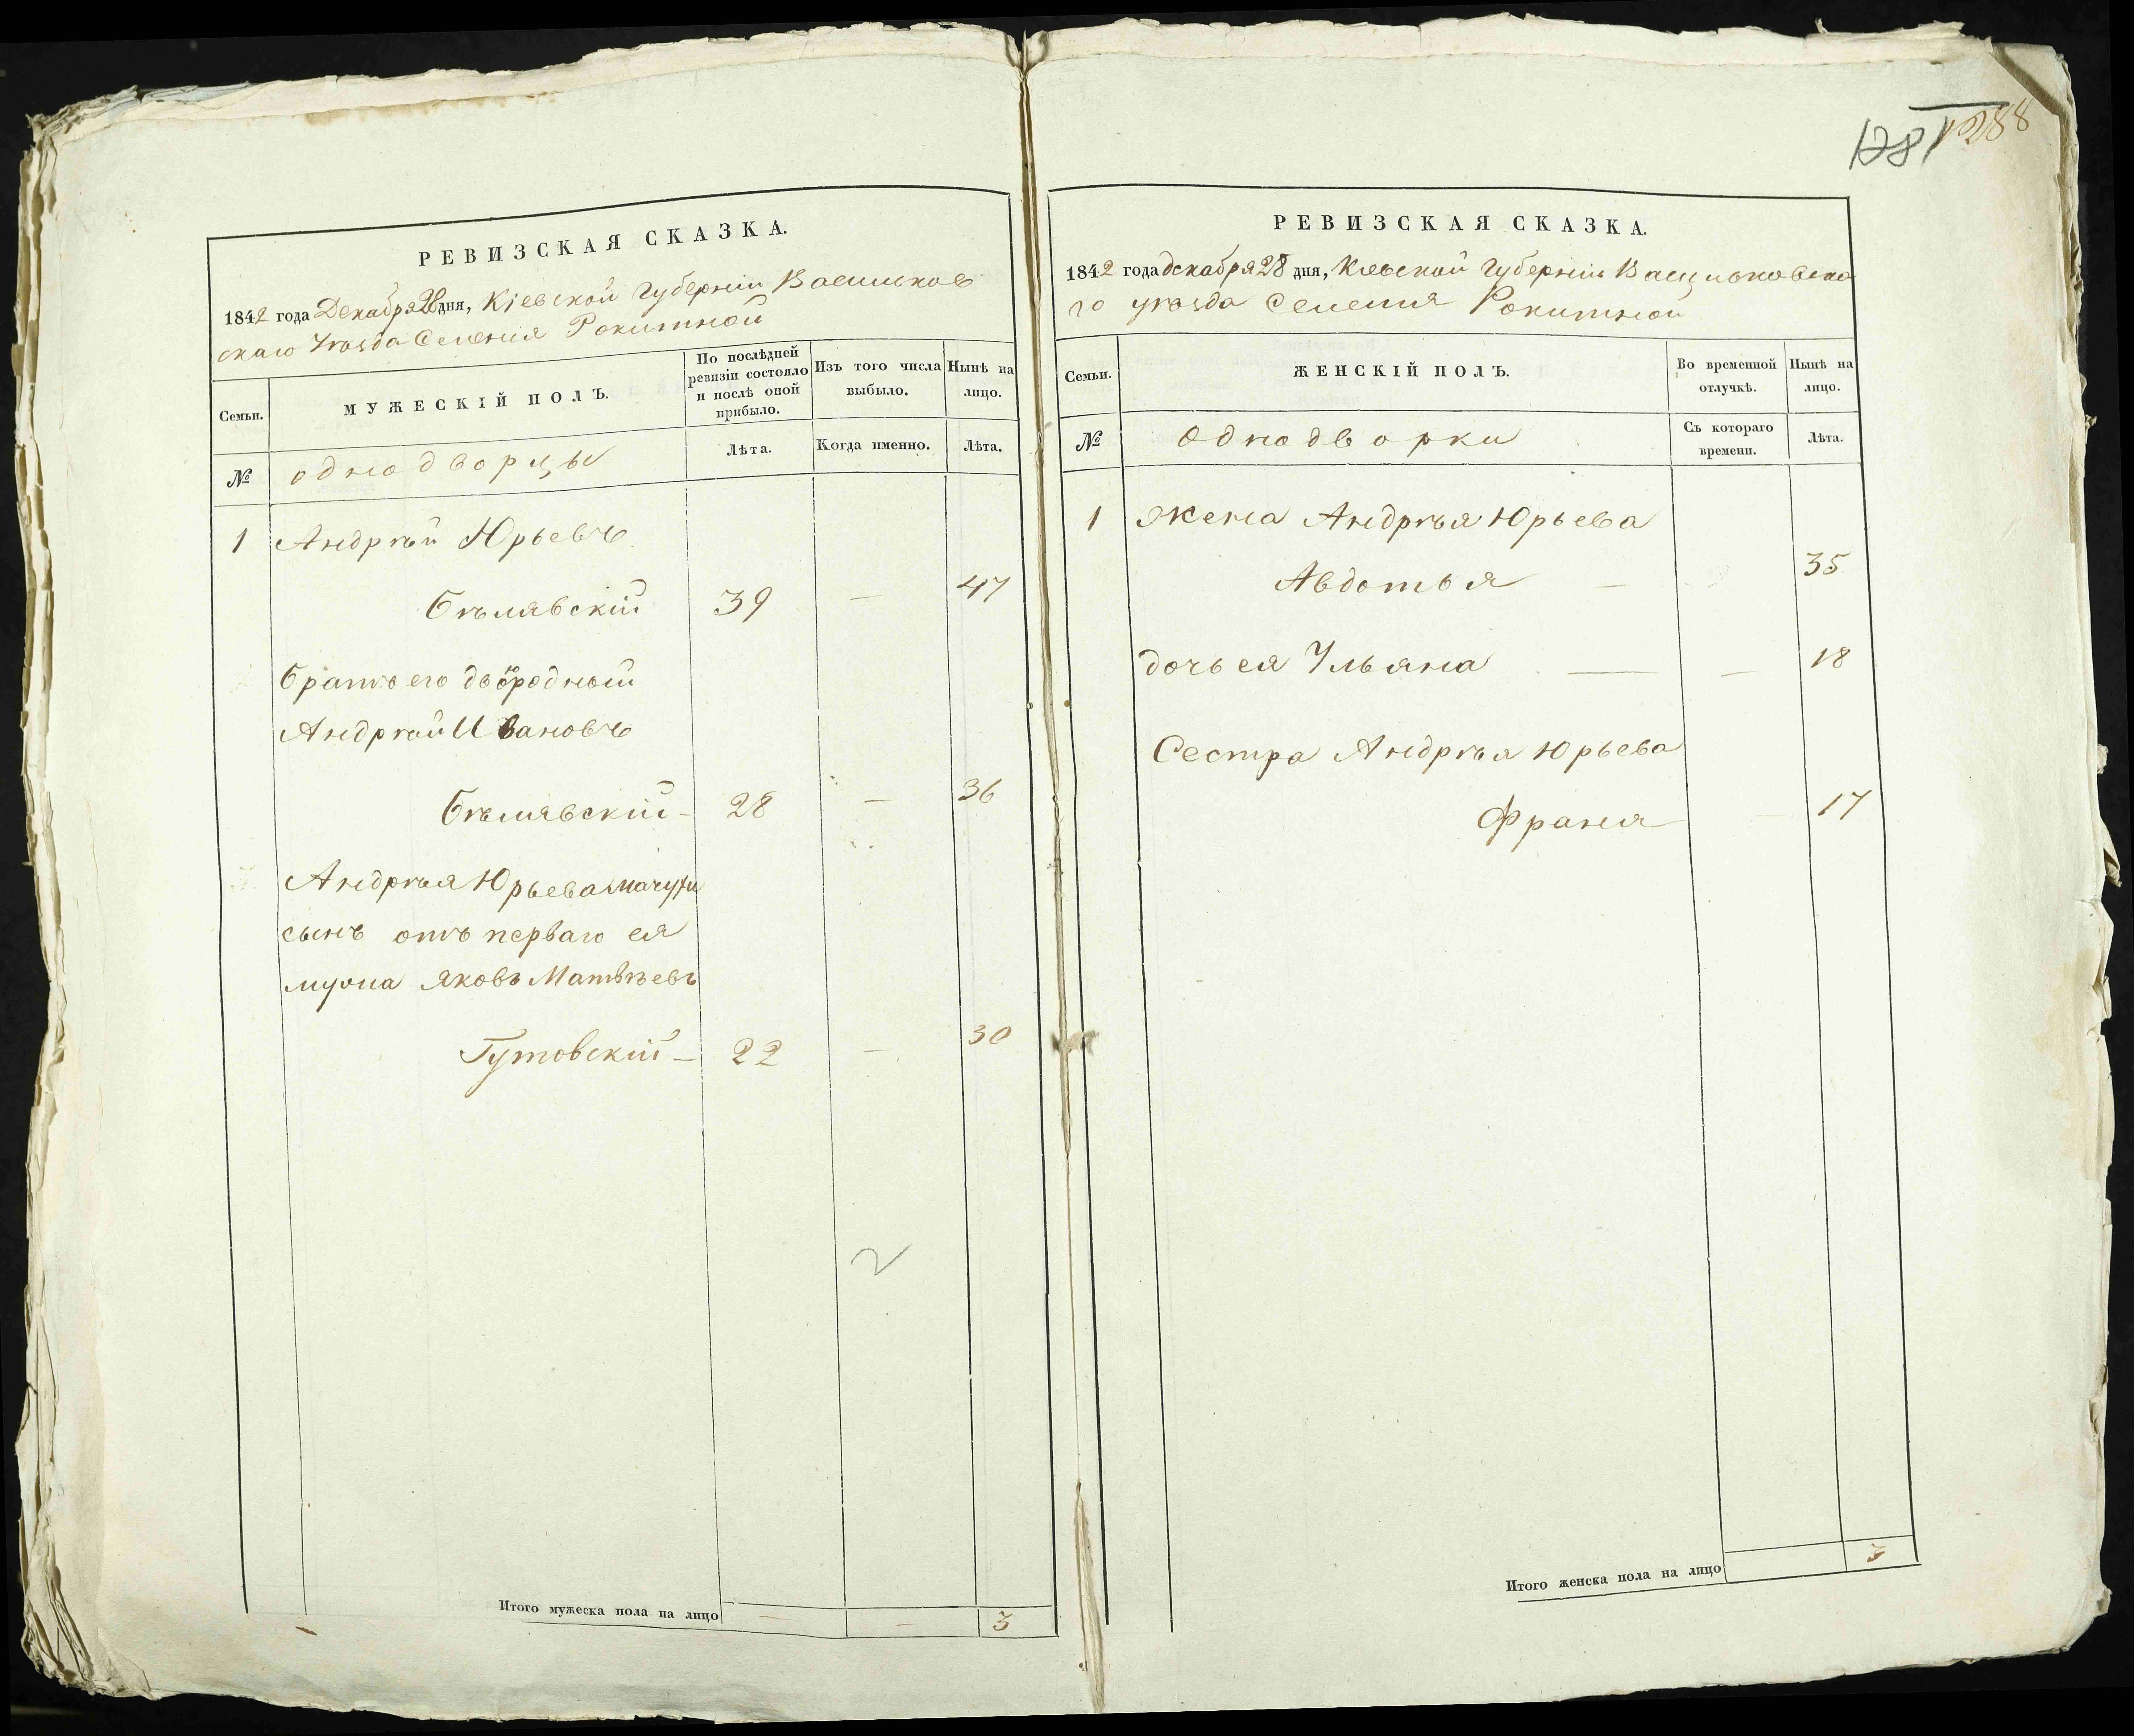 1281 1288
РЕВИЗСКАЯ СКАЗКА.
1842 года Декабря 28 дня, Кіевской губерніи Васильков
скаго Уѣзда Селенія Рокитной
Семьи.
МУЖЕСКІЙ ПОЛЪ.
По послѣдней ревизіи состояло и послѣ оной прибыло.
Изъ того числа выбыло.
Нынѣ на лицо.
№
однодворцы
Лѣта.
Когда именно.
Лѣта.
1 Андрѣй Юрьевъ
Бѣлявскій 39 — 47
братъ его двоюродный
Андрѣй Ивановъ
Бѣлявскій - 28 — 36
Андрѣя Юрьева мачухи
сынъ отъ перваго ея
мужа Яковъ Матвѣевъ
Гутовскій - 22 — 30
2
Итого мужеска пола на лицо — — 3
РЕВИЗСКАЯ СКАЗКА.
1842 года декабря 28 дня, Кіевской губерніи Васильковска
го уѣзда Селенія Рокитной
Семьи.
ЖЕНСКІЙ ПОЛЪ.
Во временной отлучкѣ.
Нынѣ на лицо.
№
Однодворки
Съ котораго времени.
Лѣта.
1 жена Андрѣя Юрьева
Авдотья — 35
дочь ея Ульяна — — 18
Сестра Андрѣя Юрьева
Франя 17
Итого женска пола на лицо 3